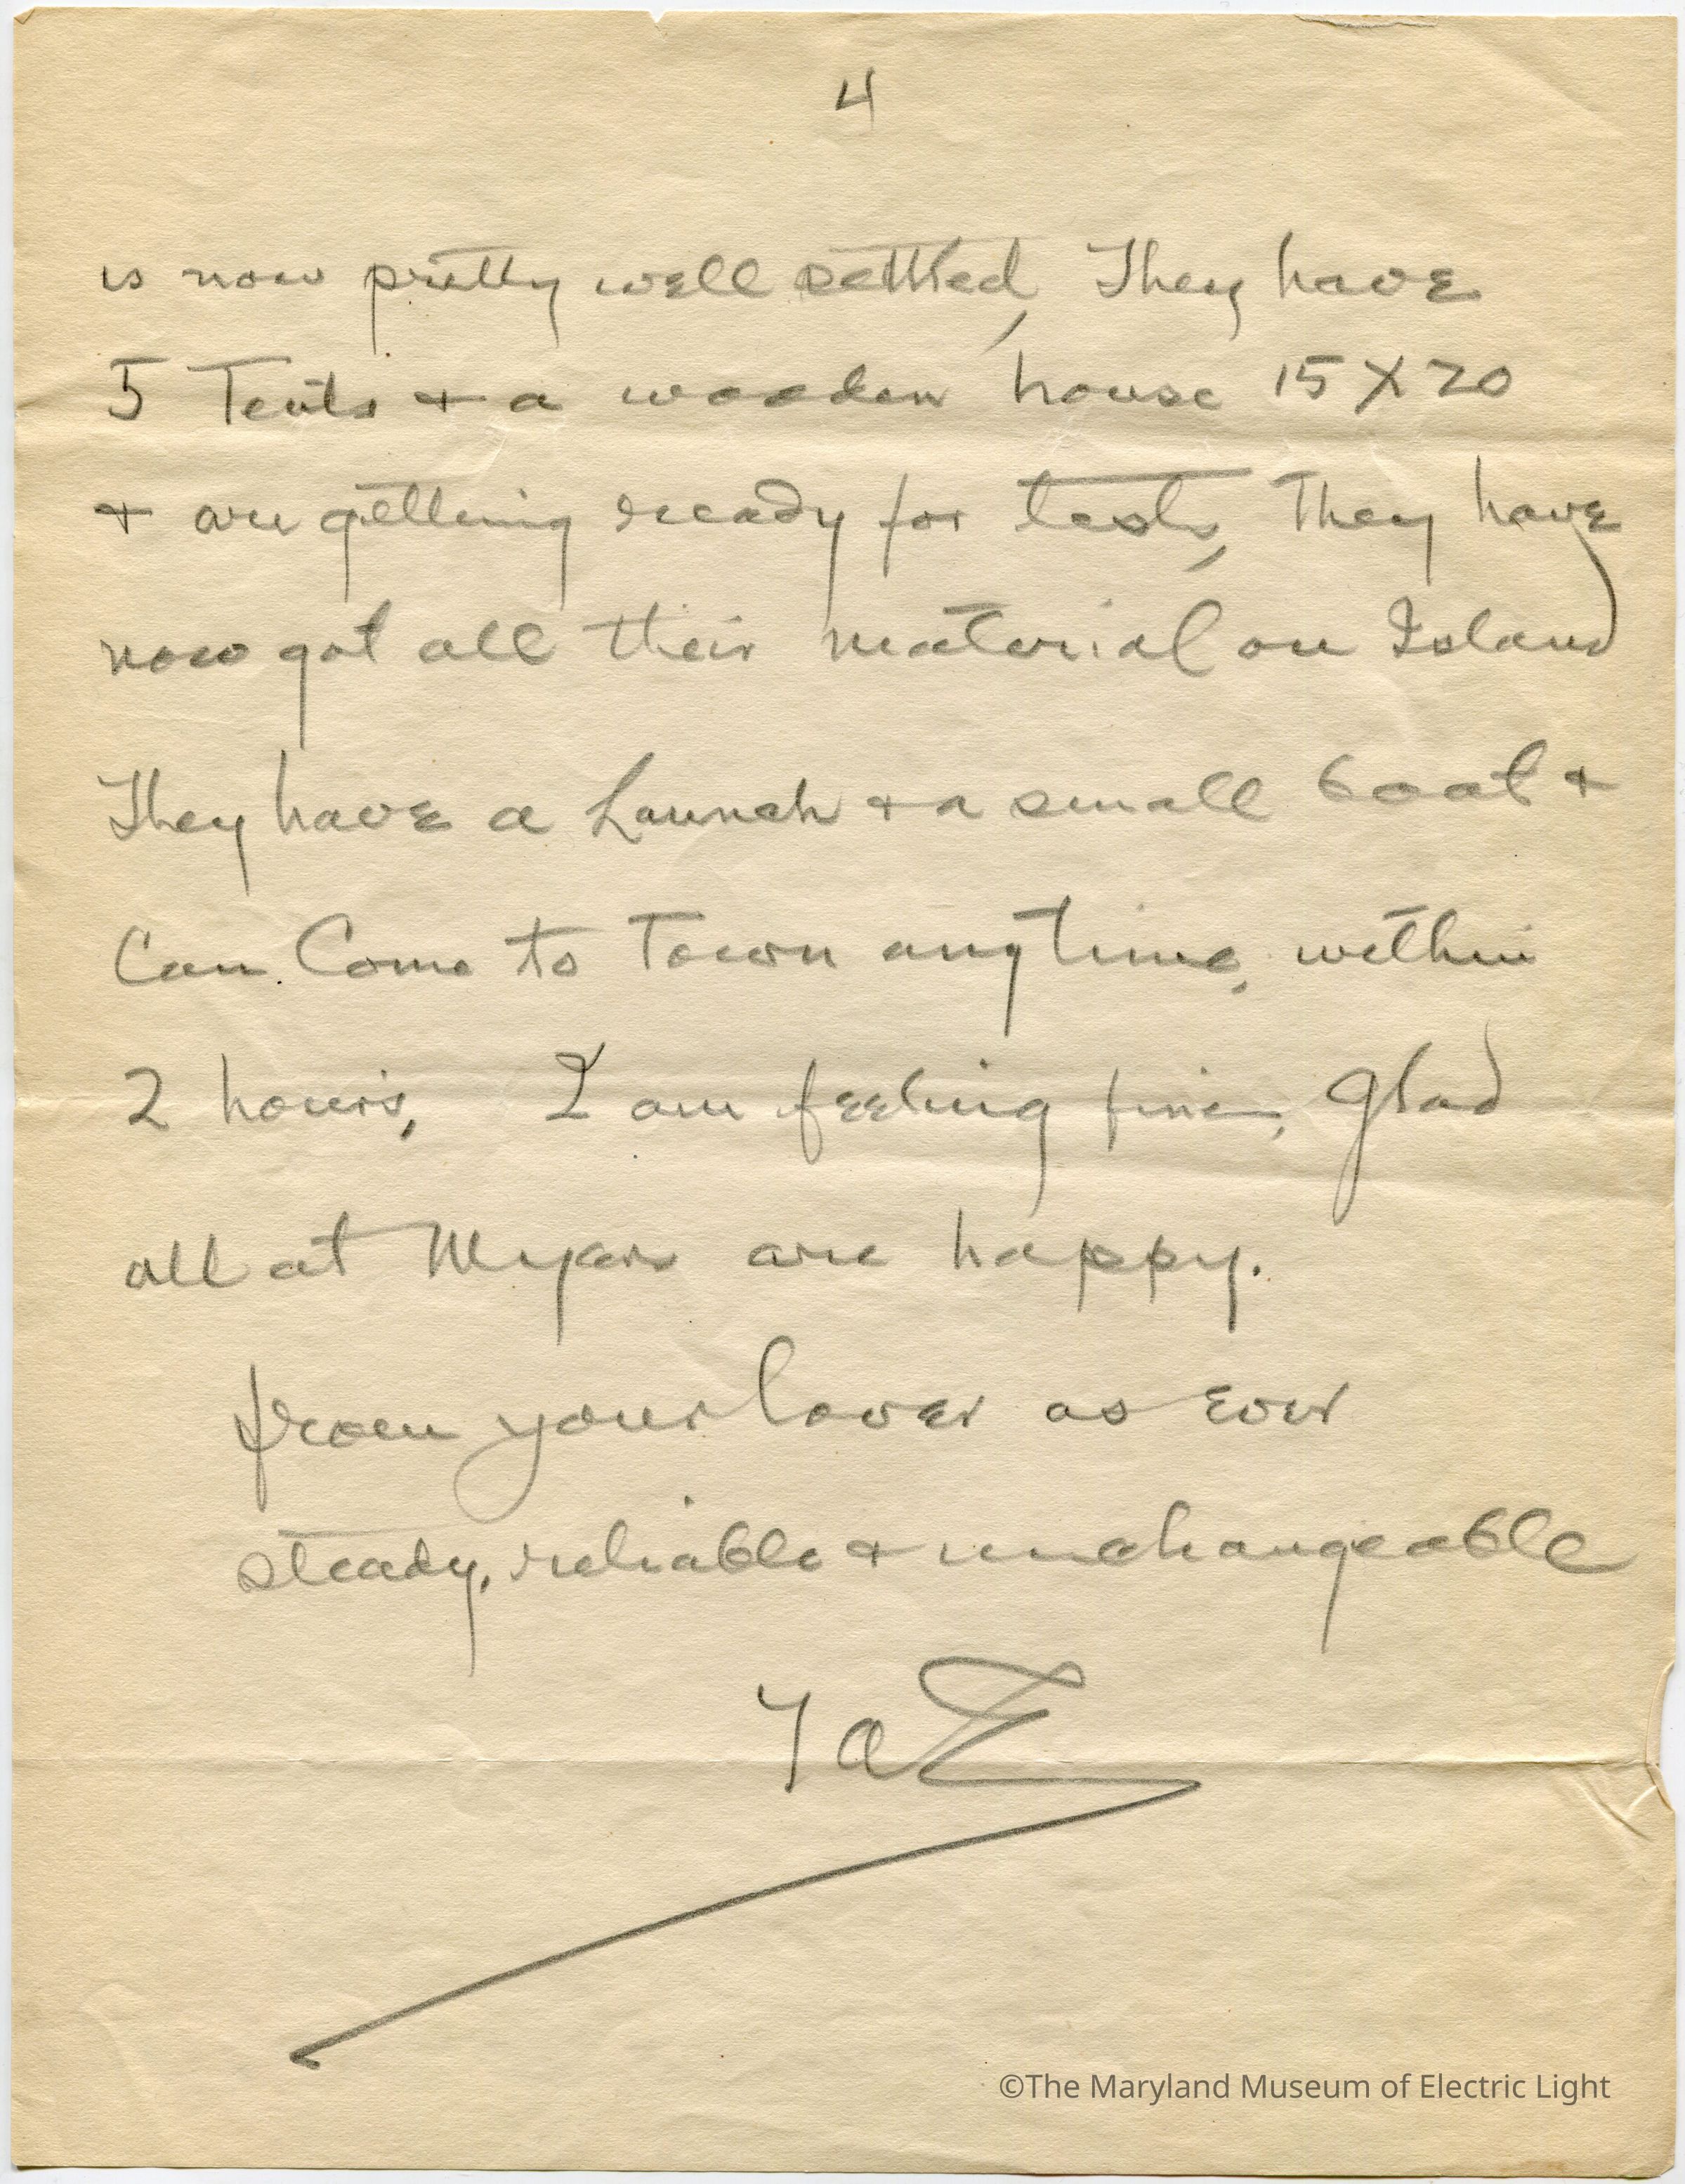 4
is now pretty well settled, They have
5 Tents + a wooden house 15 X 20
+ are getting ready for tests, They have
now got all their material on Island
They have a Launch + a small boat +
Can Come to Town anytime, within
2 hours, I am feeling fine, Glad
all at Myers are happy.
from your lover as Ever
steady, reliable + unchangeable
TaE
©The Maryland Museum of Electric Light